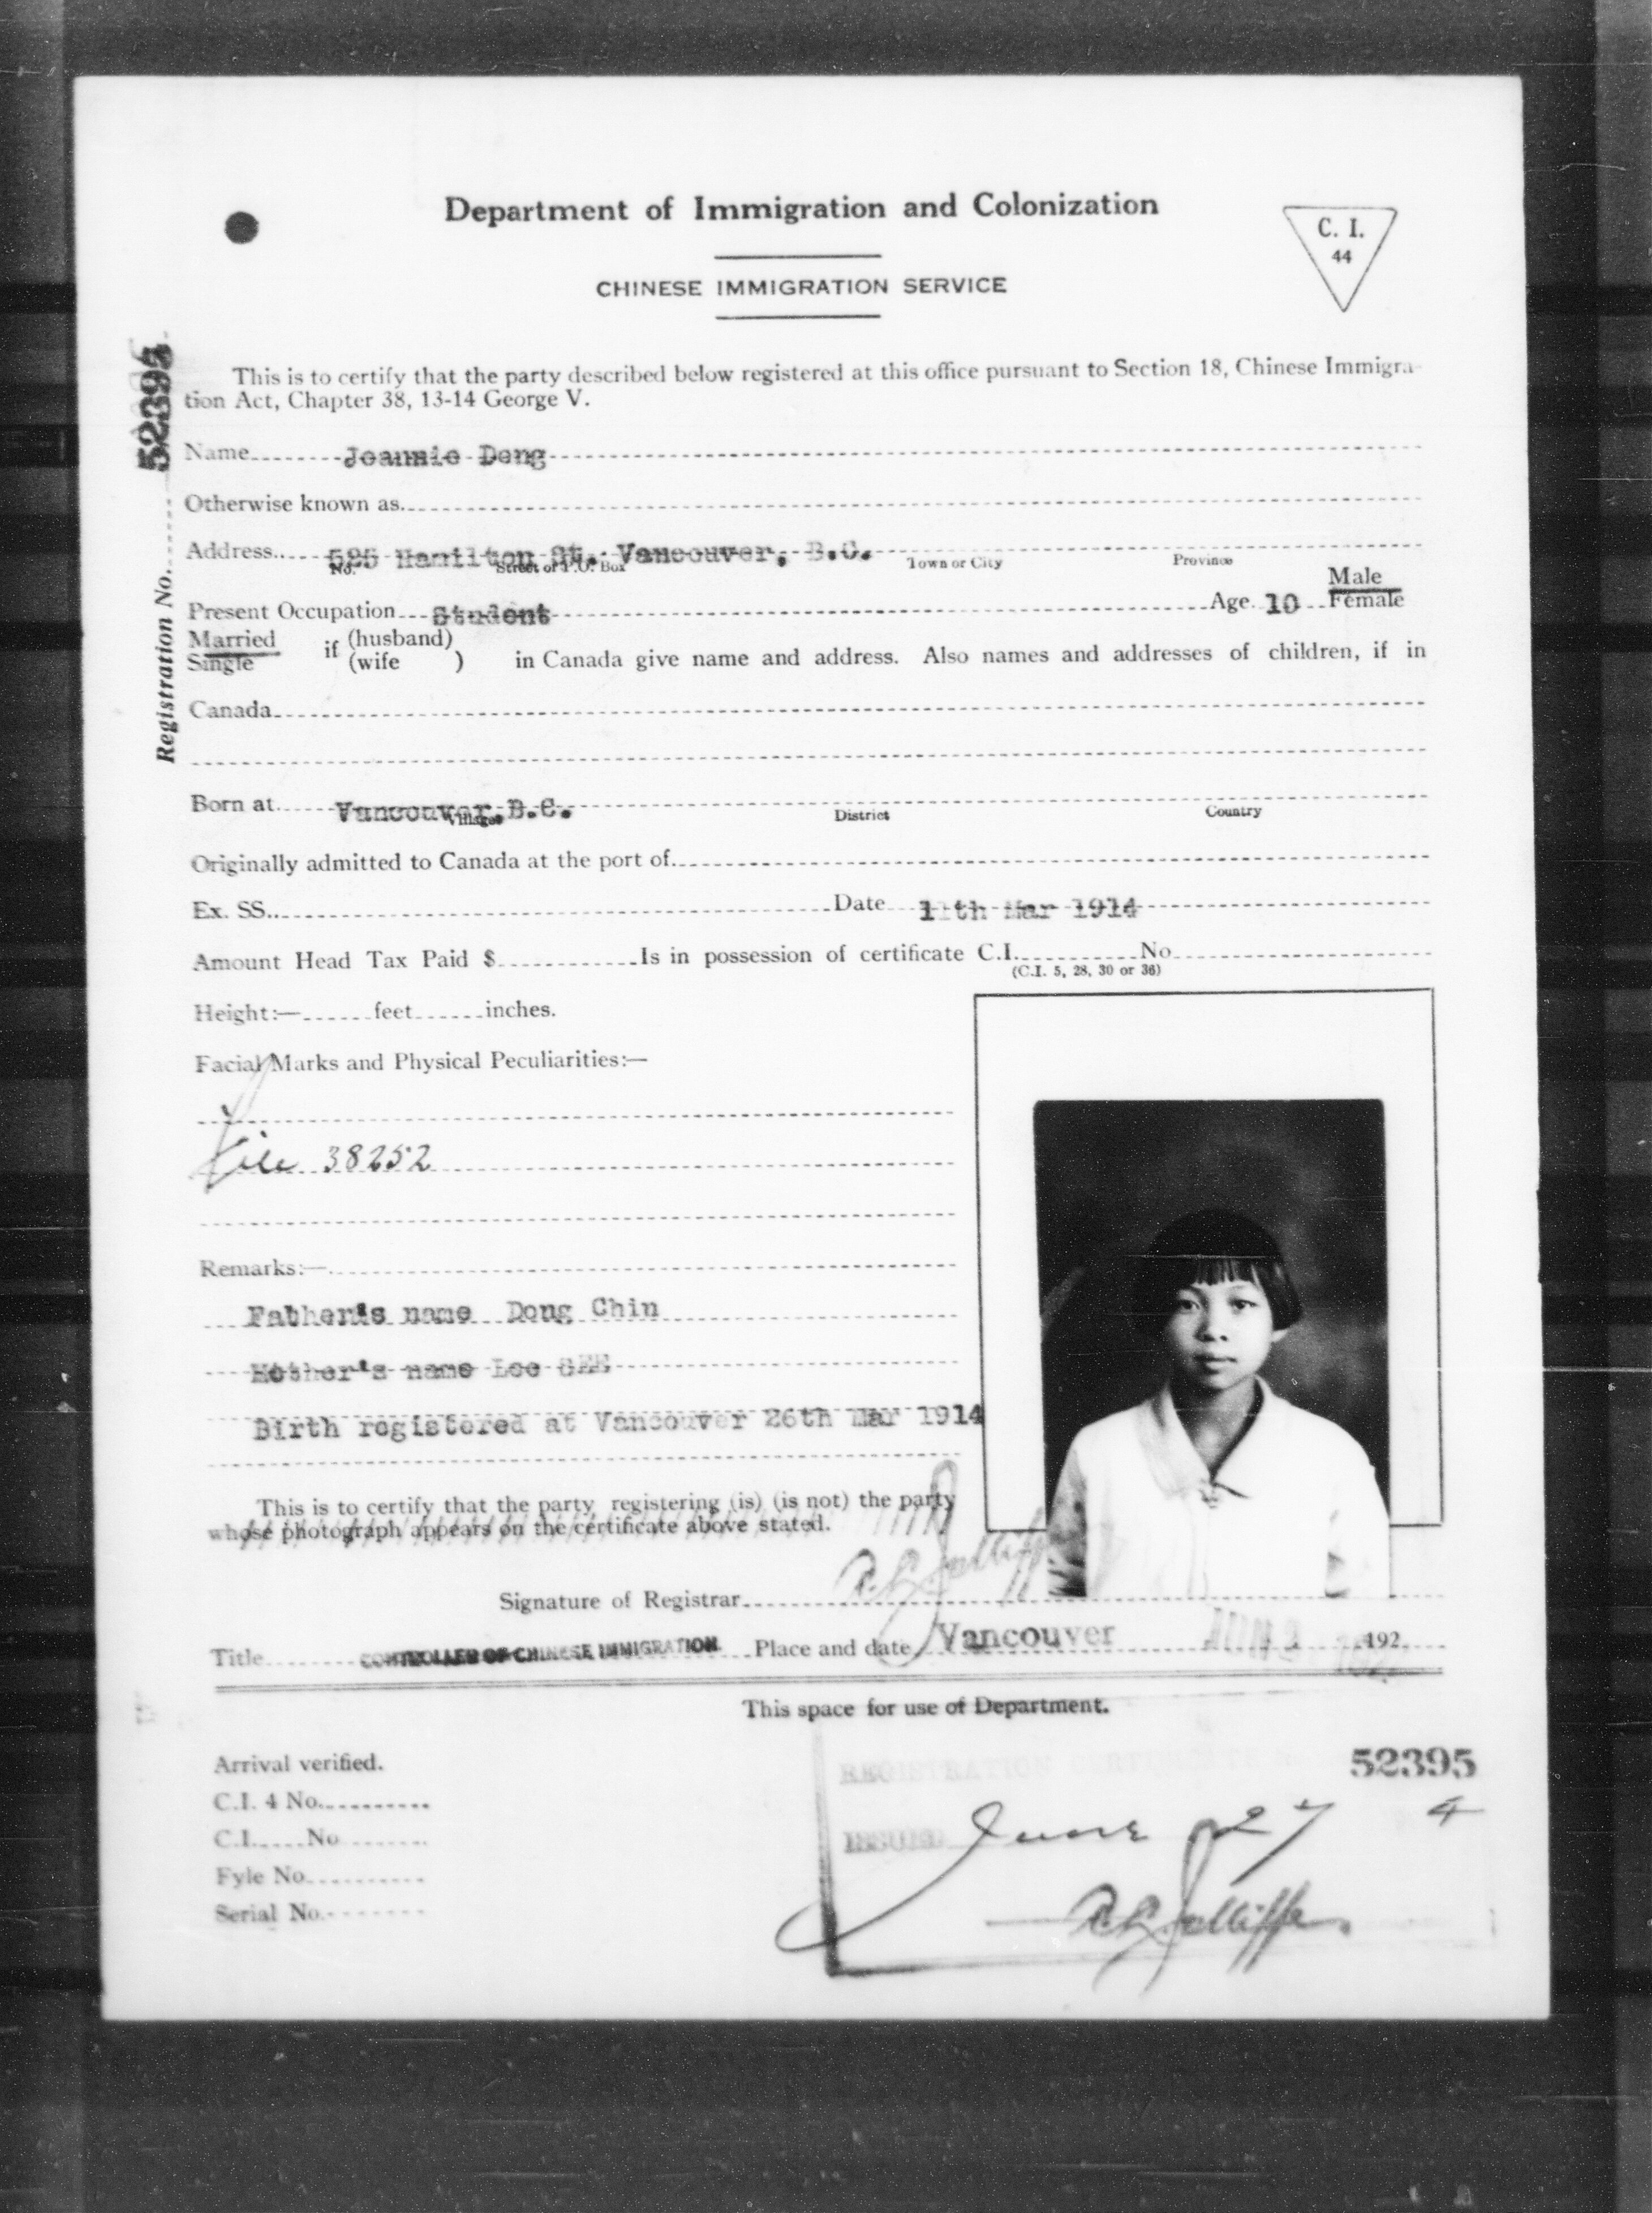 Department of Immigration and Colonization
C. I.
44
CHINESE IMMIGRATION SERVICE
Registration No. 52395
This is to certify that the party described below registered at this office pursuant to Section 18, Chinese Immigra-
tion Act, Chapter 38, 13-14 George V.
Name Jeannie Dong
Otherwise known as
Address 525 Hamilton St. Vancouver, B.C.
No. Street or P.O. Box Town or City Province
Male
Present Occupation Student Age 10 Female
Married if (husband)
Single (wife ) in Canada give name and address. Also names and addresses of children, if in
Canada
Born at Vancouver, B.C.
Village District Country
Originally admitted to Canada at the port of
Ex. SS. Date th Mar 1914
Amount Head Tax Paid $ Is in possession of certificate C.I. No
(C.I. 5, 28, 30 or 36)
Height:— feet inches.
Facial Marks and Physical Peculiarities:—
File 38252
Remarks:—
Father's name Dong Chin
Mother's name Lee SEE
Birth registered at Vancouver 26th Mar 1914
This is to certify that the party registering (is) (is not) the party
whose photograph appears on the certificate above stated.
Signature of Registrar
Title CONTROLLER OF CHINESE IMMIGRATION Place and date Vancouver JUN 192
This space for use of Department.
Arrival verified.
C.I. 4 No.
C.I. No
Fyle No.
Serial No.
REGISTRATION CERTIFICATE 52395
ISSUED June 27 4